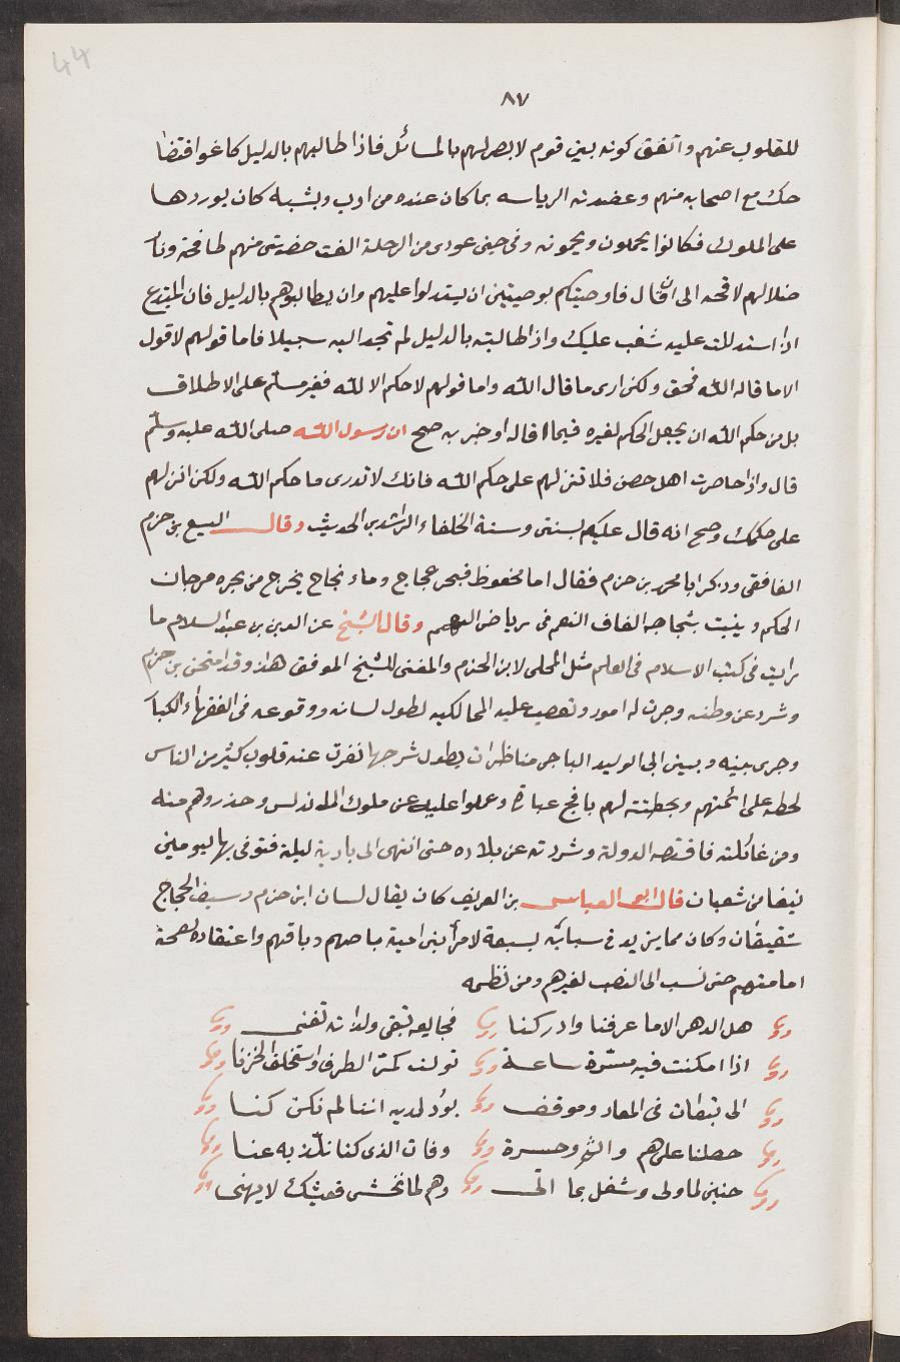 44
٨٧
للقلوب عنهم واتفق كونه بين قوم لا بصر لهم بالمسائل فاذا طالبهم بالدليل كاغوا فتضا
حك مع اصحابه منهم وعضدته الرياسه بما كان عنده من ادب وبشبه كان يوردها
على الملوك فكانوا يحملون ويحمونه وفي حين عودى من الرحلة الفت حضرتى منهم طافحة ونار
ضلالهم لافحه الى ان قال فاوصيتكم بوصيتين ان يستدلوا عليهم وان يطالبوهم بالدليل فان المبتدع
اذا استدللت عليه شغب عليك واذا طالبته بالدليل لم تجد اليه سبيلا فاما قولهم لا قول
الا ما قاله الله فحق ولكن ارى ما قال الله واما قولهم لا حكم الا لله فغير مسلم على الاطلاق
بل من حكم الله ان يجعل الحكم لغيره فيما قاله او خبر به صح ان رسول الله صلى الله عليه وسلم
قال واذا حاصرت اهل حصن فلا تنزلهم على حكم الله فانك لا تدرى ما حكم الله ولكن انزلهم
على حكمك وصح انه قال عليكم بسنتى وسنة الخلفاء الراشدين الحديث وقال اليسع بن حزم
الغافقى وذكر ابا محمد بن حزم فقال اما محفوظ فبحر عجاج وماء ثجاج يخرج من بحره مرجان
الحكم وينبت بثجاجه الفاف النعم فى رياض الهمم وقال الشيخ عز الدين بن عبد السلام ما
رايت فى كتب الاسلام فى العلم مثل المحلى لابن الحزم والمغنى للشيخ الموفق هذا وقد امتحن بن حزم
وشرد عن وطنه وجرت له امور وتعصب عليه المالكيه لطول لسانه ووقوعه فى الفقهاء الكبار
وجرى بينه وبين ابى الوليد الباجى مناظرات يطول شرحها نفرت عنه قلوب كثير من الناس
لحطه على ائمتهم وتخطئته لهم بافج عبارة وعملوا عليه عن ملوك الاندلس وحذروهم منه
ومن غائلته فاقصته الدولة وشردته عن بلاده حتى انتهى الى بادية لبلة فتوفى بها ليومين
بقيا من شعبان قال ابو العباس بن العريف كان يقال لسان ابن حزم وسيف الحجاج
شقيقان وكان مما يزيد فى سبابه بسبعة لامرأ بنى امية ماضيهم وباقيهم واعتقاده لصحة
امامتهم حتى نسب الى النصب لغيرهم ومن نظمه
هل الدهر الا ما عرفنا وادركنا فجايعه تبقى ولذاته تفنى
اذا امكنت فيه مسرة ساعة تولت كمر الطرف واستخلف الحزنا
الى تبعات فى المعاد وموقف نود لديه اننا لم نكن كنا
حصلنا على هم واثم وحسرة وفات الذى كنا نلذ به عنا
حنين لما ولى وشغل بما اتى وهم لما نخشى فعيشك لا يهنى